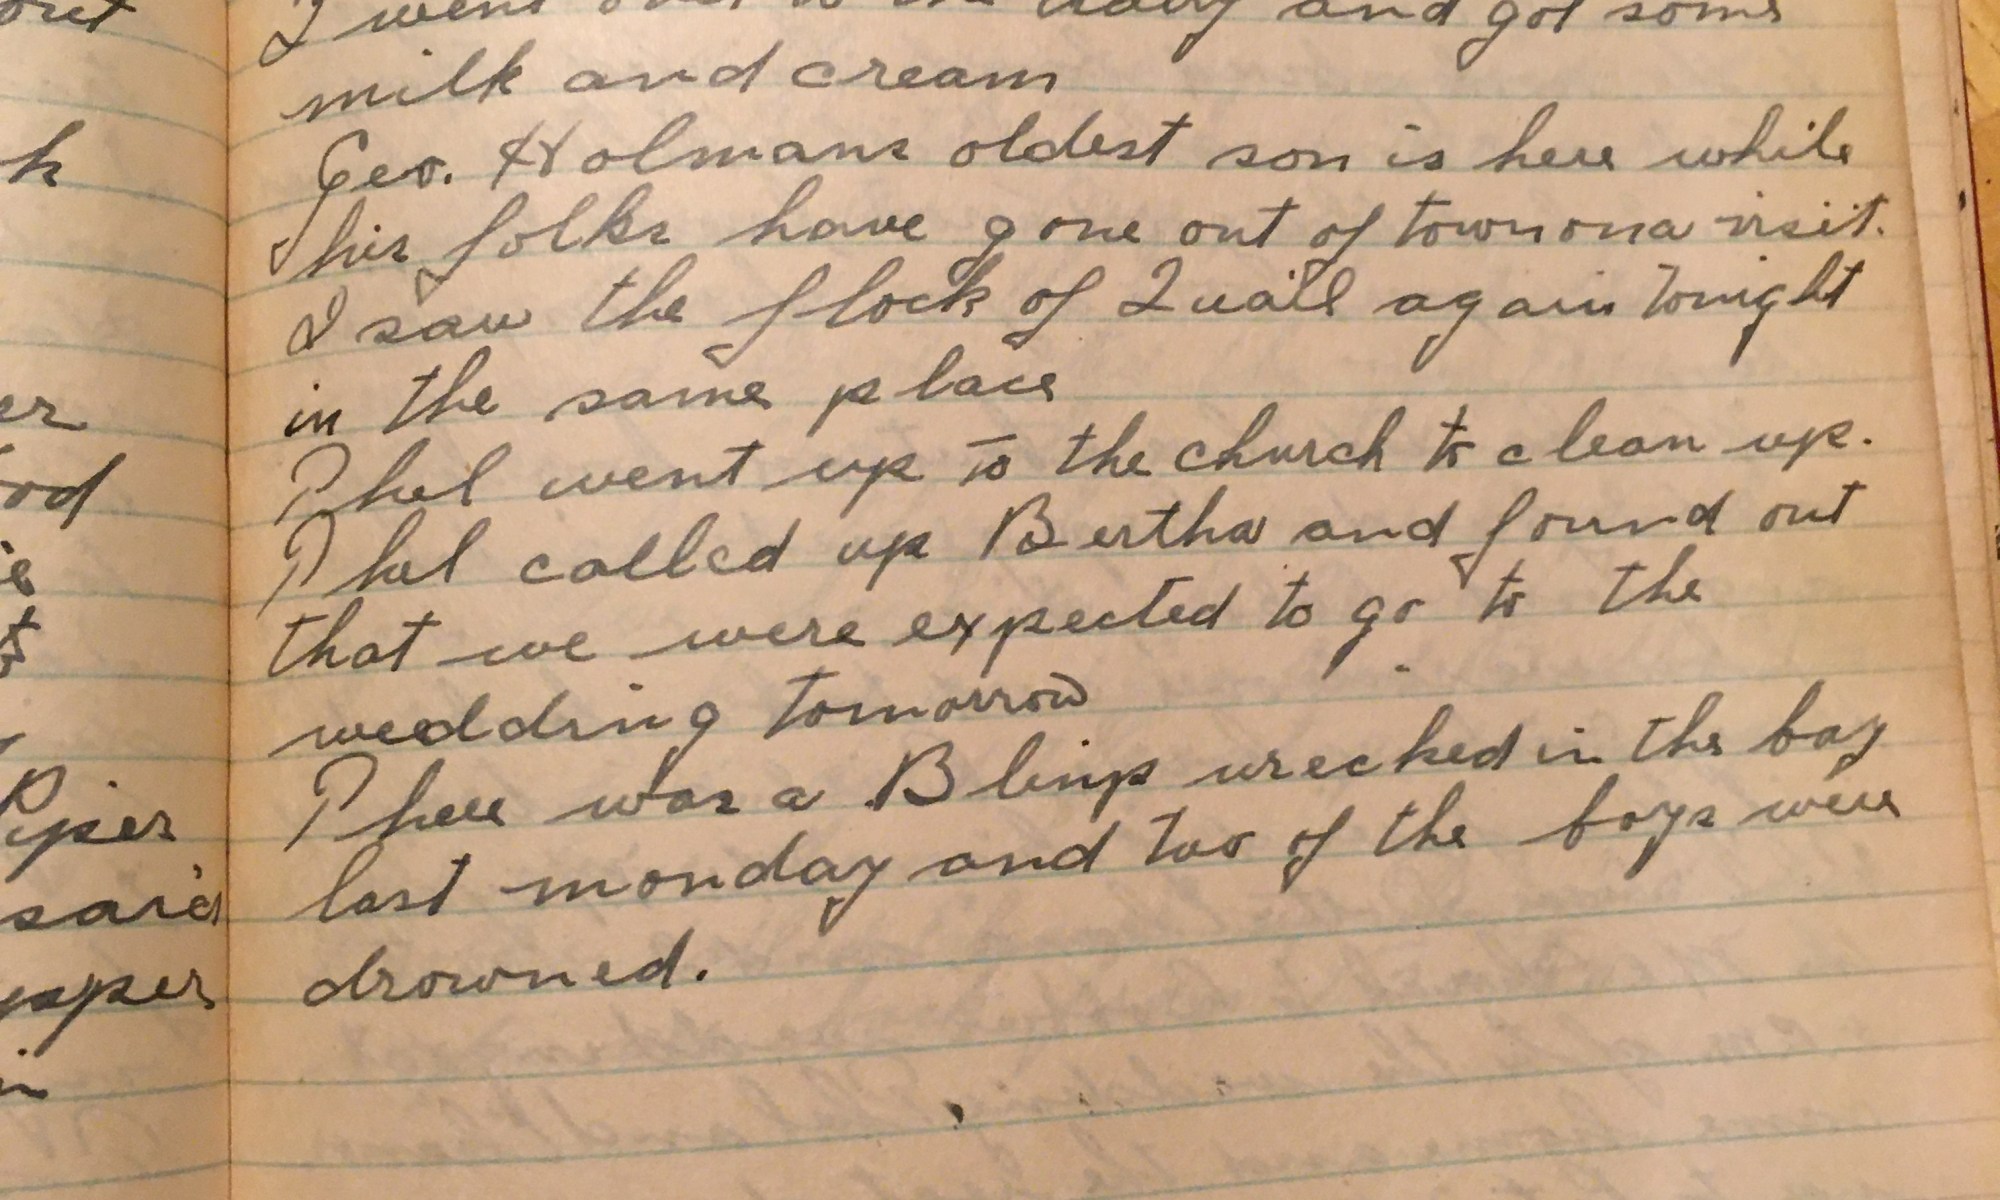 out
Piper
said
I went over to the dairy and got some
milk and cream
Geo. Holmans oldest son is here while
his folks have gone out of town on a visit.
I saw the flock of Quail again tonight
in the same place
Thel went up to the church to clean up.
Thel called up Bertha and found out
that we were expected to go to the
wedding tomorrow
There was a Blimp wrecked in the bay
last monday and two of the boys were
drowned.